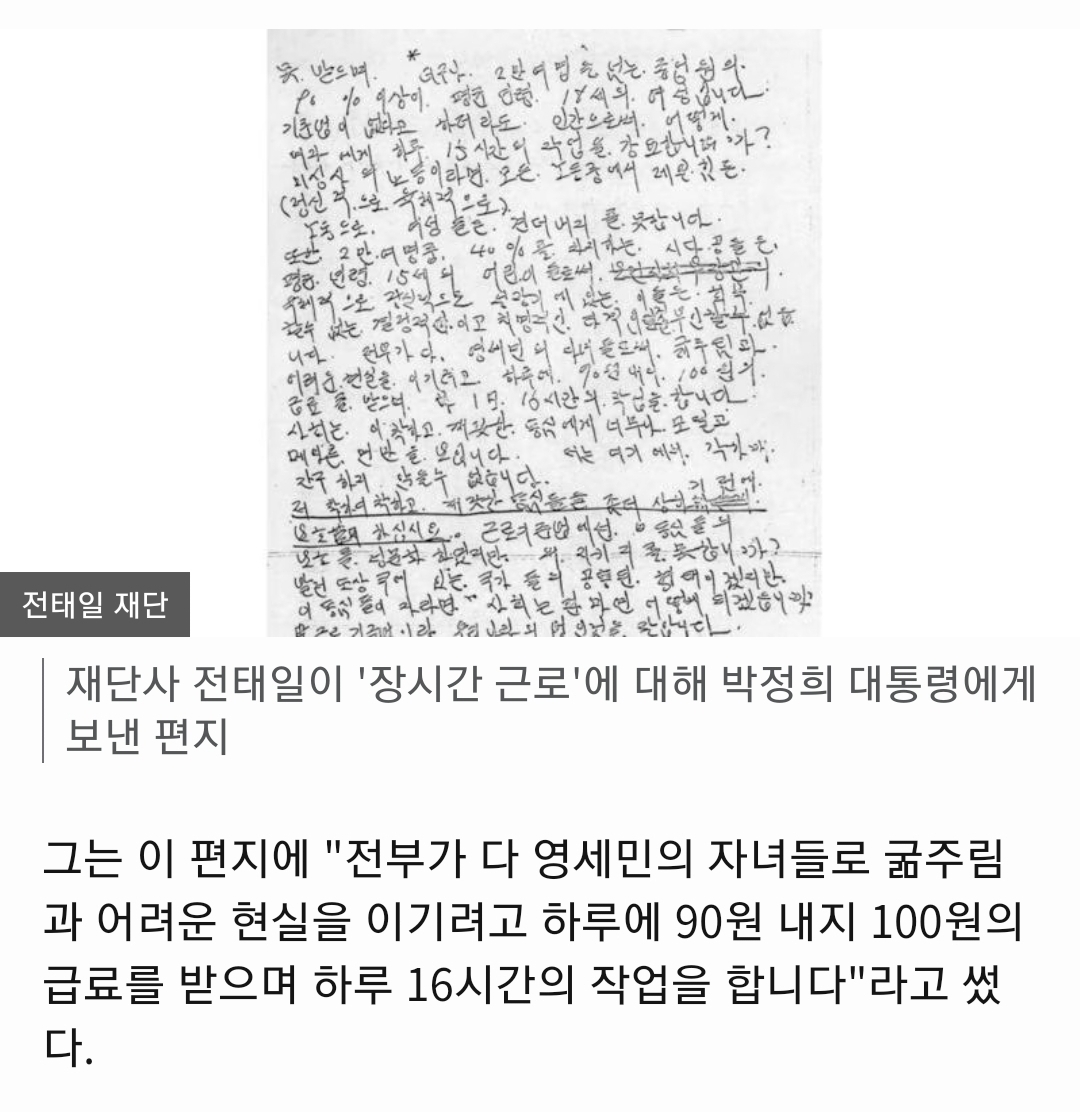 못 받으며. 2만여명을 넘는 종업원의.
90%이상이. 평균 연령. 18세의. 여성입니다.
기준법이 없다고 하더라도. 인간으로써. 어떻게.
여자에게 하루. 15시간의 작업을. 강요합니까?
미싱사의 노동이라면. 모든. 노동중에서 제일. 힘든.
(정신적.으로 육체적으로)
노동으로. 여성들은. 견뎌내지를.못합니다.
또한 2만.여명중. 40%를 차지하는. 시다공들은.
평균.연령. 15세의 어린이들로써.
육체적으로 정신적으로 성장기에 있는. 이들은.
없는. 결정적이고 치명적인. 타격
니다. 전부가 다. 영세민의 자녀들로써. 굶주림과.
어려운.현실을. 이기려고 하루에. 90원내지. 100원의.
급료를.받으며. 1日. 16시간의.작업을.합니다.
사회는. 이 착하고.깨끗한. 동심에게 너무나 모질고
메마른.면만을.보입니다. 저는 여기에서. 각하께.
간구하지 않을수 없습니다.
저 착하디착하고. 깨끗한 동심들을 좀더 상하기 전에.
보호하십시요. 근로기준법에선. 동심들의
보호를.성문화하였지만. 왜 지키지를.못합니까?
발전도상국에 있는. 국가들의 공통된. 형태이겠지만.
이 동심들이 자라면. 사회는 과연 어떻게 되겠습니까?
전태일 재단
재단사 전태일이 '장시간 근로'에 대해 박정희 대통령에게
보낸 편지
그는 이 편지에 "전부가 다 영세민의 자녀들로 굶주림
과 어려운 현실을 이기려고 하루에 90원 내지 100원의
급료를 받으며 하루 16시간의 작업을 합니다"라고 썼
다.